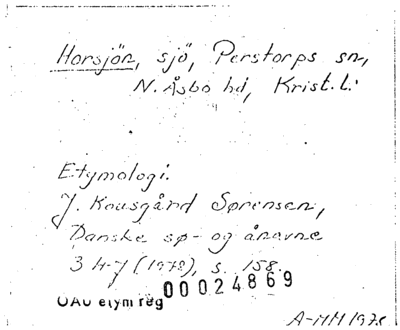 Horsjön, sjö, Perstorps sn,
N. Åsbo hd, Krist. l.
Etymologi.
J. Kousgård Sørensen,
Danske sø- og ånavne
3 H-J (1978), s. 158.
00024869
OAU etym reg
A-MM 1978